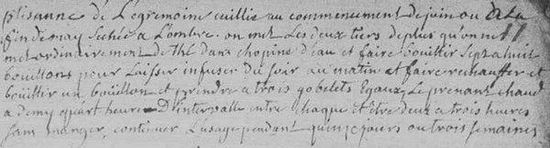 ptisanne de Legremoine cuillie au commencement de join ou A La
fin de may sechée a L'ombre. on met Les deux tiers de plus qu'on n'en
met ordinairement de thé dans chopine d'eau et faire bouillir sept a huit
bouillons pour Laisser infuser du soir au matin et faire rechauffer et
bouillir un bouillon et prendre a trois gobelets Egaux Le prenant chaud
a demy quart heure D'intervalle entre chaque et être deux a trois heures
sans manger, continuer L'usage pendant quinze jours ou trois semaines